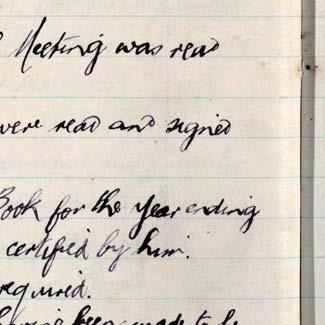 Meeting was read
were read and signed
Book for the Year ending
certified by him.
required.
having been made to